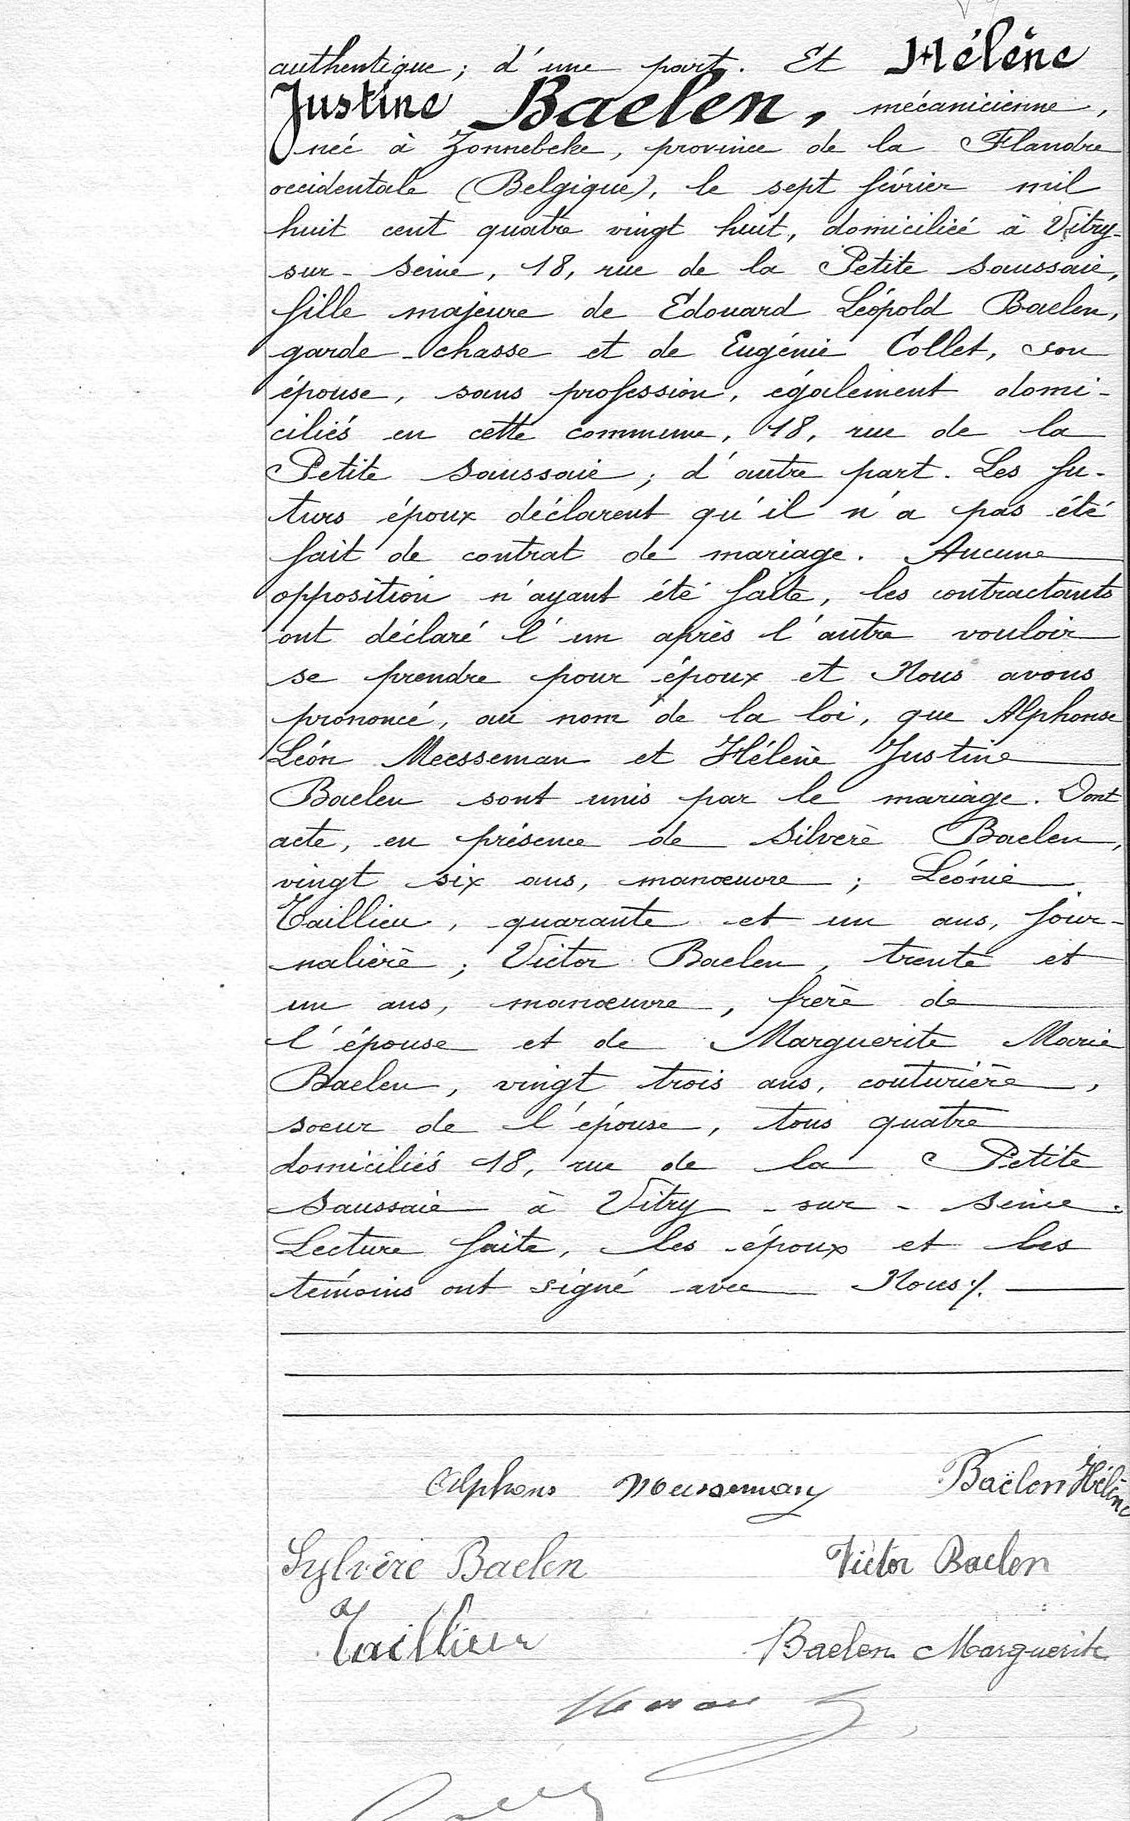 authentique ; d'une part. Et Hélène
Justine Baelen, mécanicienne,
née à Zonnebeke, province de la Flandre
occidentale (Belgique), le sept février mil
huit cent quatre vingt huit, domiciliée à Vitry-
sur-Seine, 18, rue de la Petite Saussaie,
fille majeure de Edouard Léopold Baelen,
garde-chasse et de Eugénie Collet, son
épouse, sans profession, également domi-
ciliés en cette commune, 18, rue de la
Petite Saussaie ; d'autre part. Les fu-
turs époux déclarent qu'il n'a pas été
fait de contrat de mariage. Aucune
opposition n'ayant été faite, les contractants
ont déclaré l'un après l'autre vouloir
se prendre pour époux et Nous avons
prononcé, au nom de la loi, que Alphonse
Léon Meesseman et Hélène Justine
Baelen sont unis par le mariage. Dont
acte, en présence de Silvère Baelen,
vingt six ans, manœuvre ; Léonie
Taillieu, quarante et un ans, jour-
nalière ; Victor Baelen, trente et
un ans, manœuvre, frère de
l'épouse et de Marguerite Marie
Baelen, vingt trois ans, couturière,
soeur de l'épouse, tous quatre
domiciliés 18, rue de la Petite
Saussaie à Vitry-sur-Seine.
Lecture faite, les époux et les
témoins ont signé avec Nous ./.
Alphons Meesseman Baelen Hélène
Sylvère Baelen Victor Baelen
Taillieu Baelen Marguerite